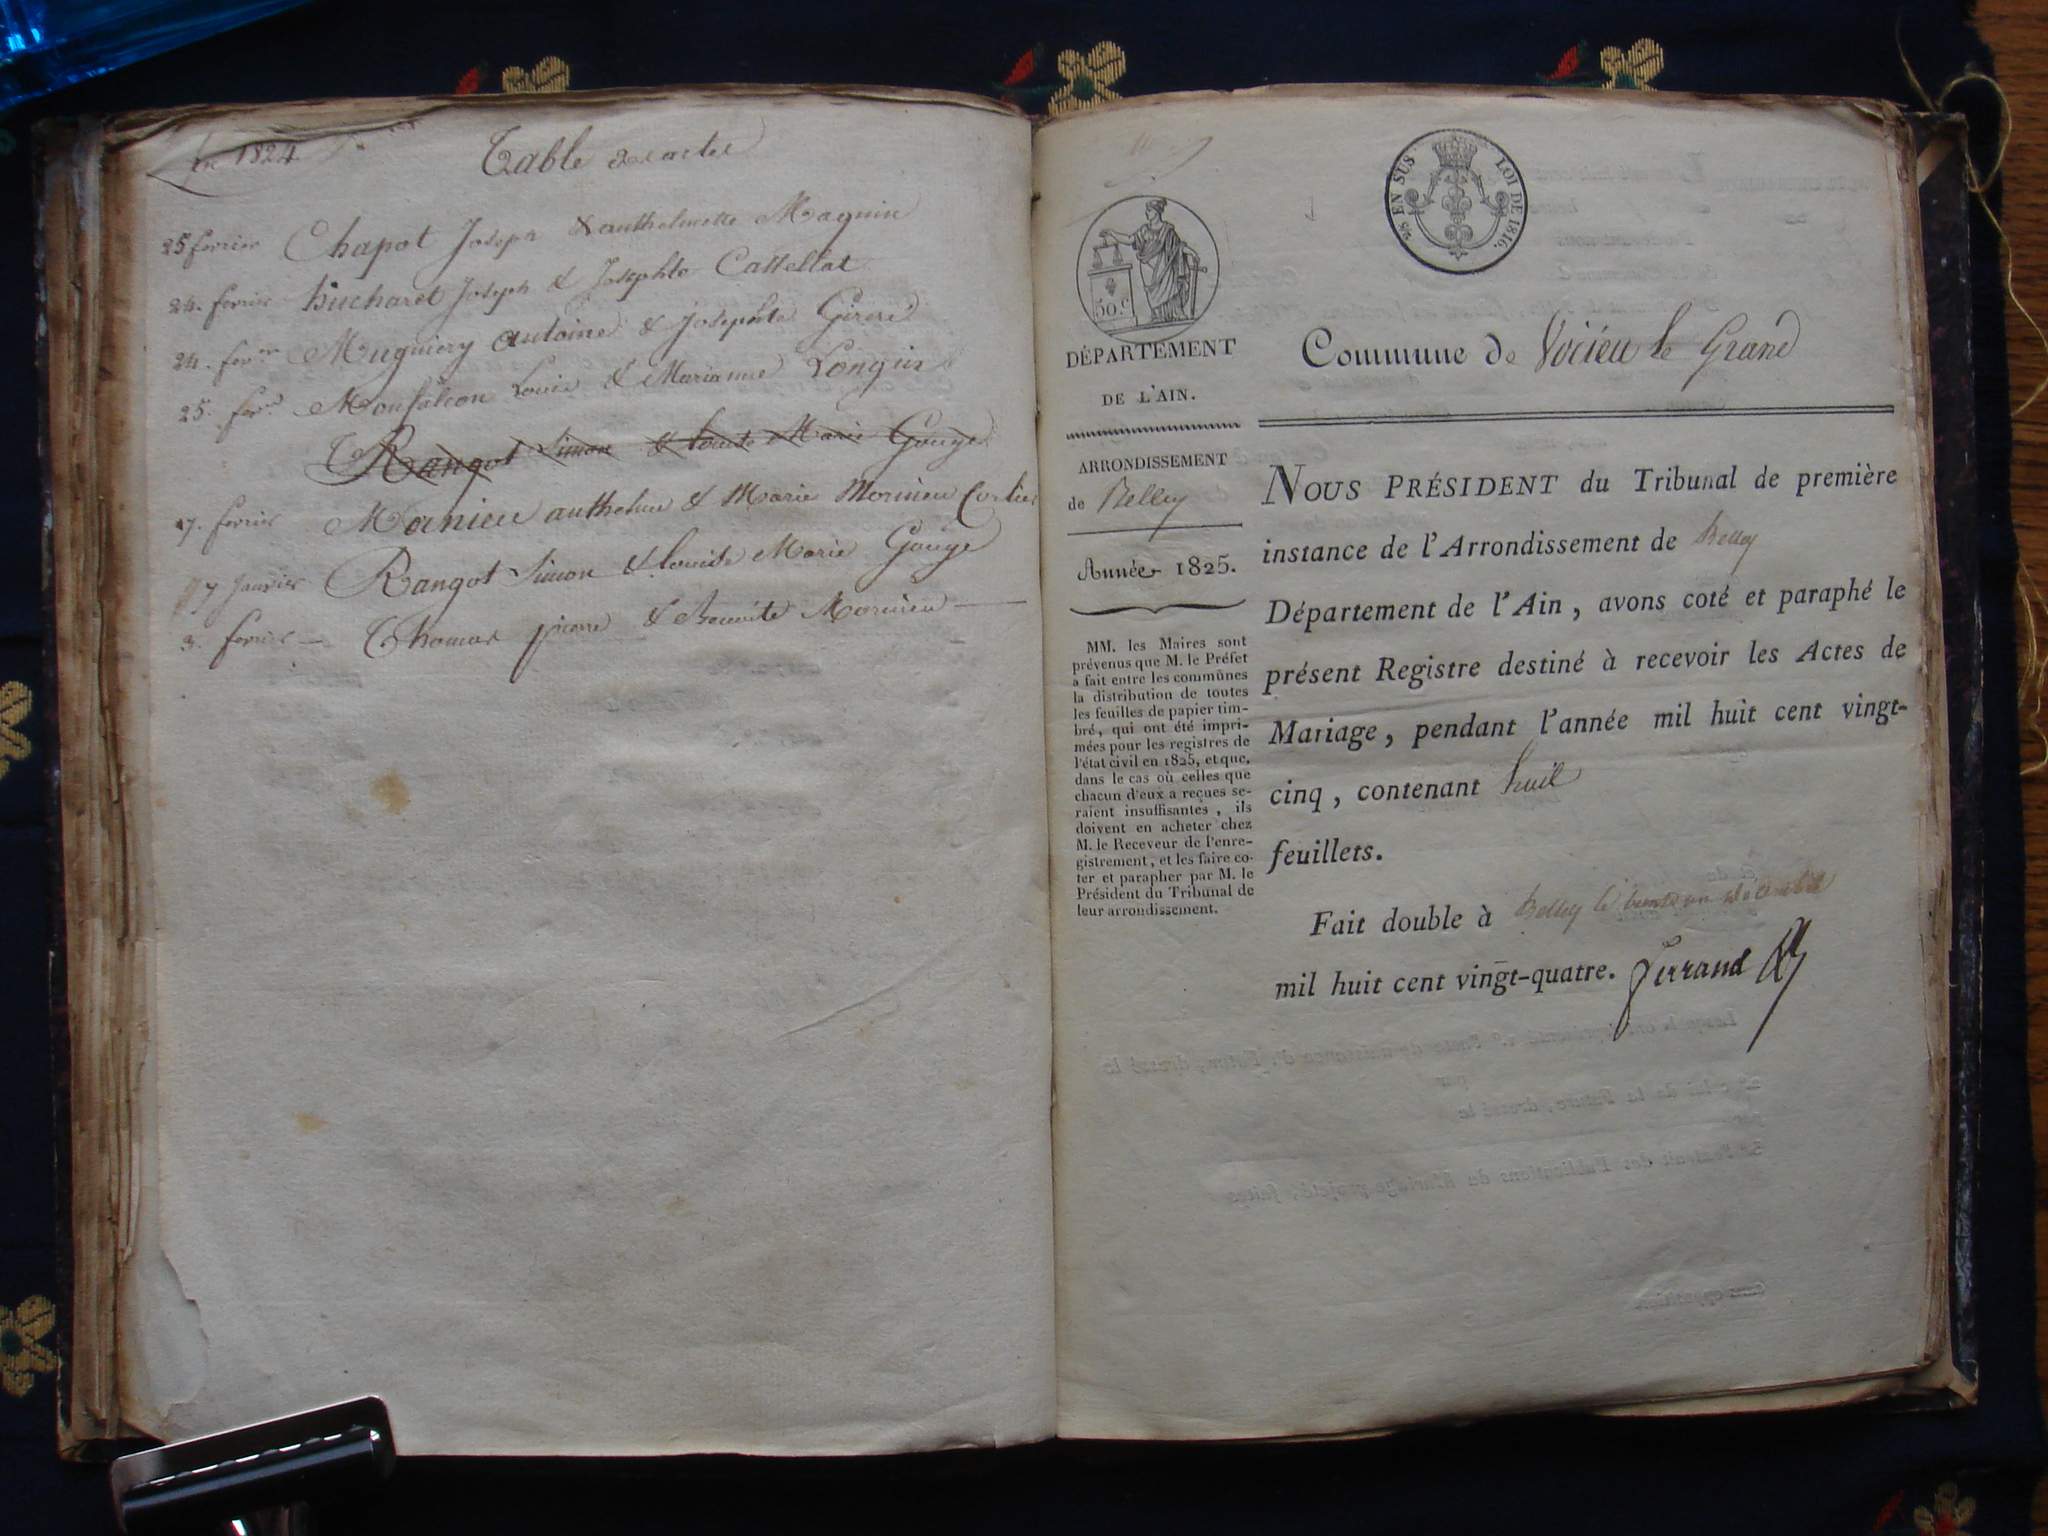 en 1824
Table des actes
25 fevrier Chapot Joseph & anthelmette Magnin
24. fevrier Bucharet Joseph & Josephte Castellat
24. fevrer Mugniery antoine & Josephte Girere
25. fevrer Monfalcon Louis & Marianne Longin
Rangot Simon & Louise Marie Gouge
17. fevrier Manieu anthelme & Marie Mornieu Cortier
17 Janvier Rangot Simon & Louise Marie Gouge
3. fevrier Thomas pierre & Benoite Mornieu
50.c
EN SUS LOI DE 1816.
DÉPARTEMENT
DE L'AIN.
ARRONDISSEMENT
de Belley
Année 1825.
MM. les Maires sont
prévenus que M. le Préfet
a fait entre les communes
la distribution de toutes
les feuilles de papier tim-
bré, qui ont été impri-
mées pour les registres de
l'état civil en 1825, et que,
dans le cas où celles que
chacun d'eux a reçues se-
raient insuffisantes, ils
doivent en acheter chez
M. le Receveur de l'enre-
gistrement, et les faire co-
ter et parapher par M. le
Président du Tribunal de
leur arrondissement.
Commune de Virieu le Grand
NOUS PRÉSIDENT du Tribunal de première
instance de l'Arrondissement de Belley
Département de l'Ain, avons coté et paraphé le
présent Registre destiné à recevoir les Actes de
Mariage, pendant l'année mil huit cent vingt-
cinq, contenant huit
feuillets.
Fait double à Belley le trente un décembre
mil huit cent vingt-quatre. Ferrand